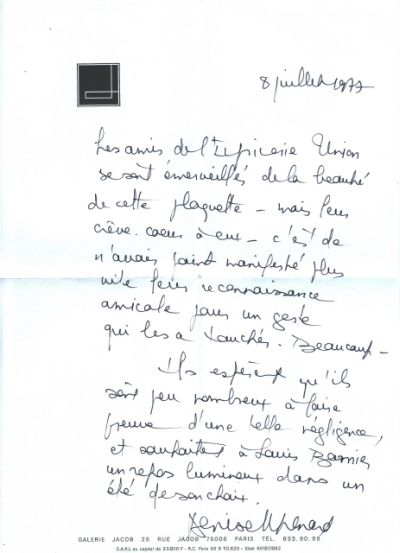 8 juillet 1977
Les amis de l'Imprimerie Union
se sont émerveillés de la beauté
de cette plaquette – mais leur
crève-coeur à eux – c'est de
n'avoir point manifesté plus
vite leur reconnaissance
amicale pour un geste
qui les a touchés. Beaucoup –
Ils espèrent qu'ils
sont peu nombreux à faire
preuve d'une telle négligence,
et souhaitent à Louis Barnier
un repos lumineux dans un
été de son choix.
Denise
GALERIE JACOB 28 RUE JACOB 75006 PARIS TÉL. 633.90.66